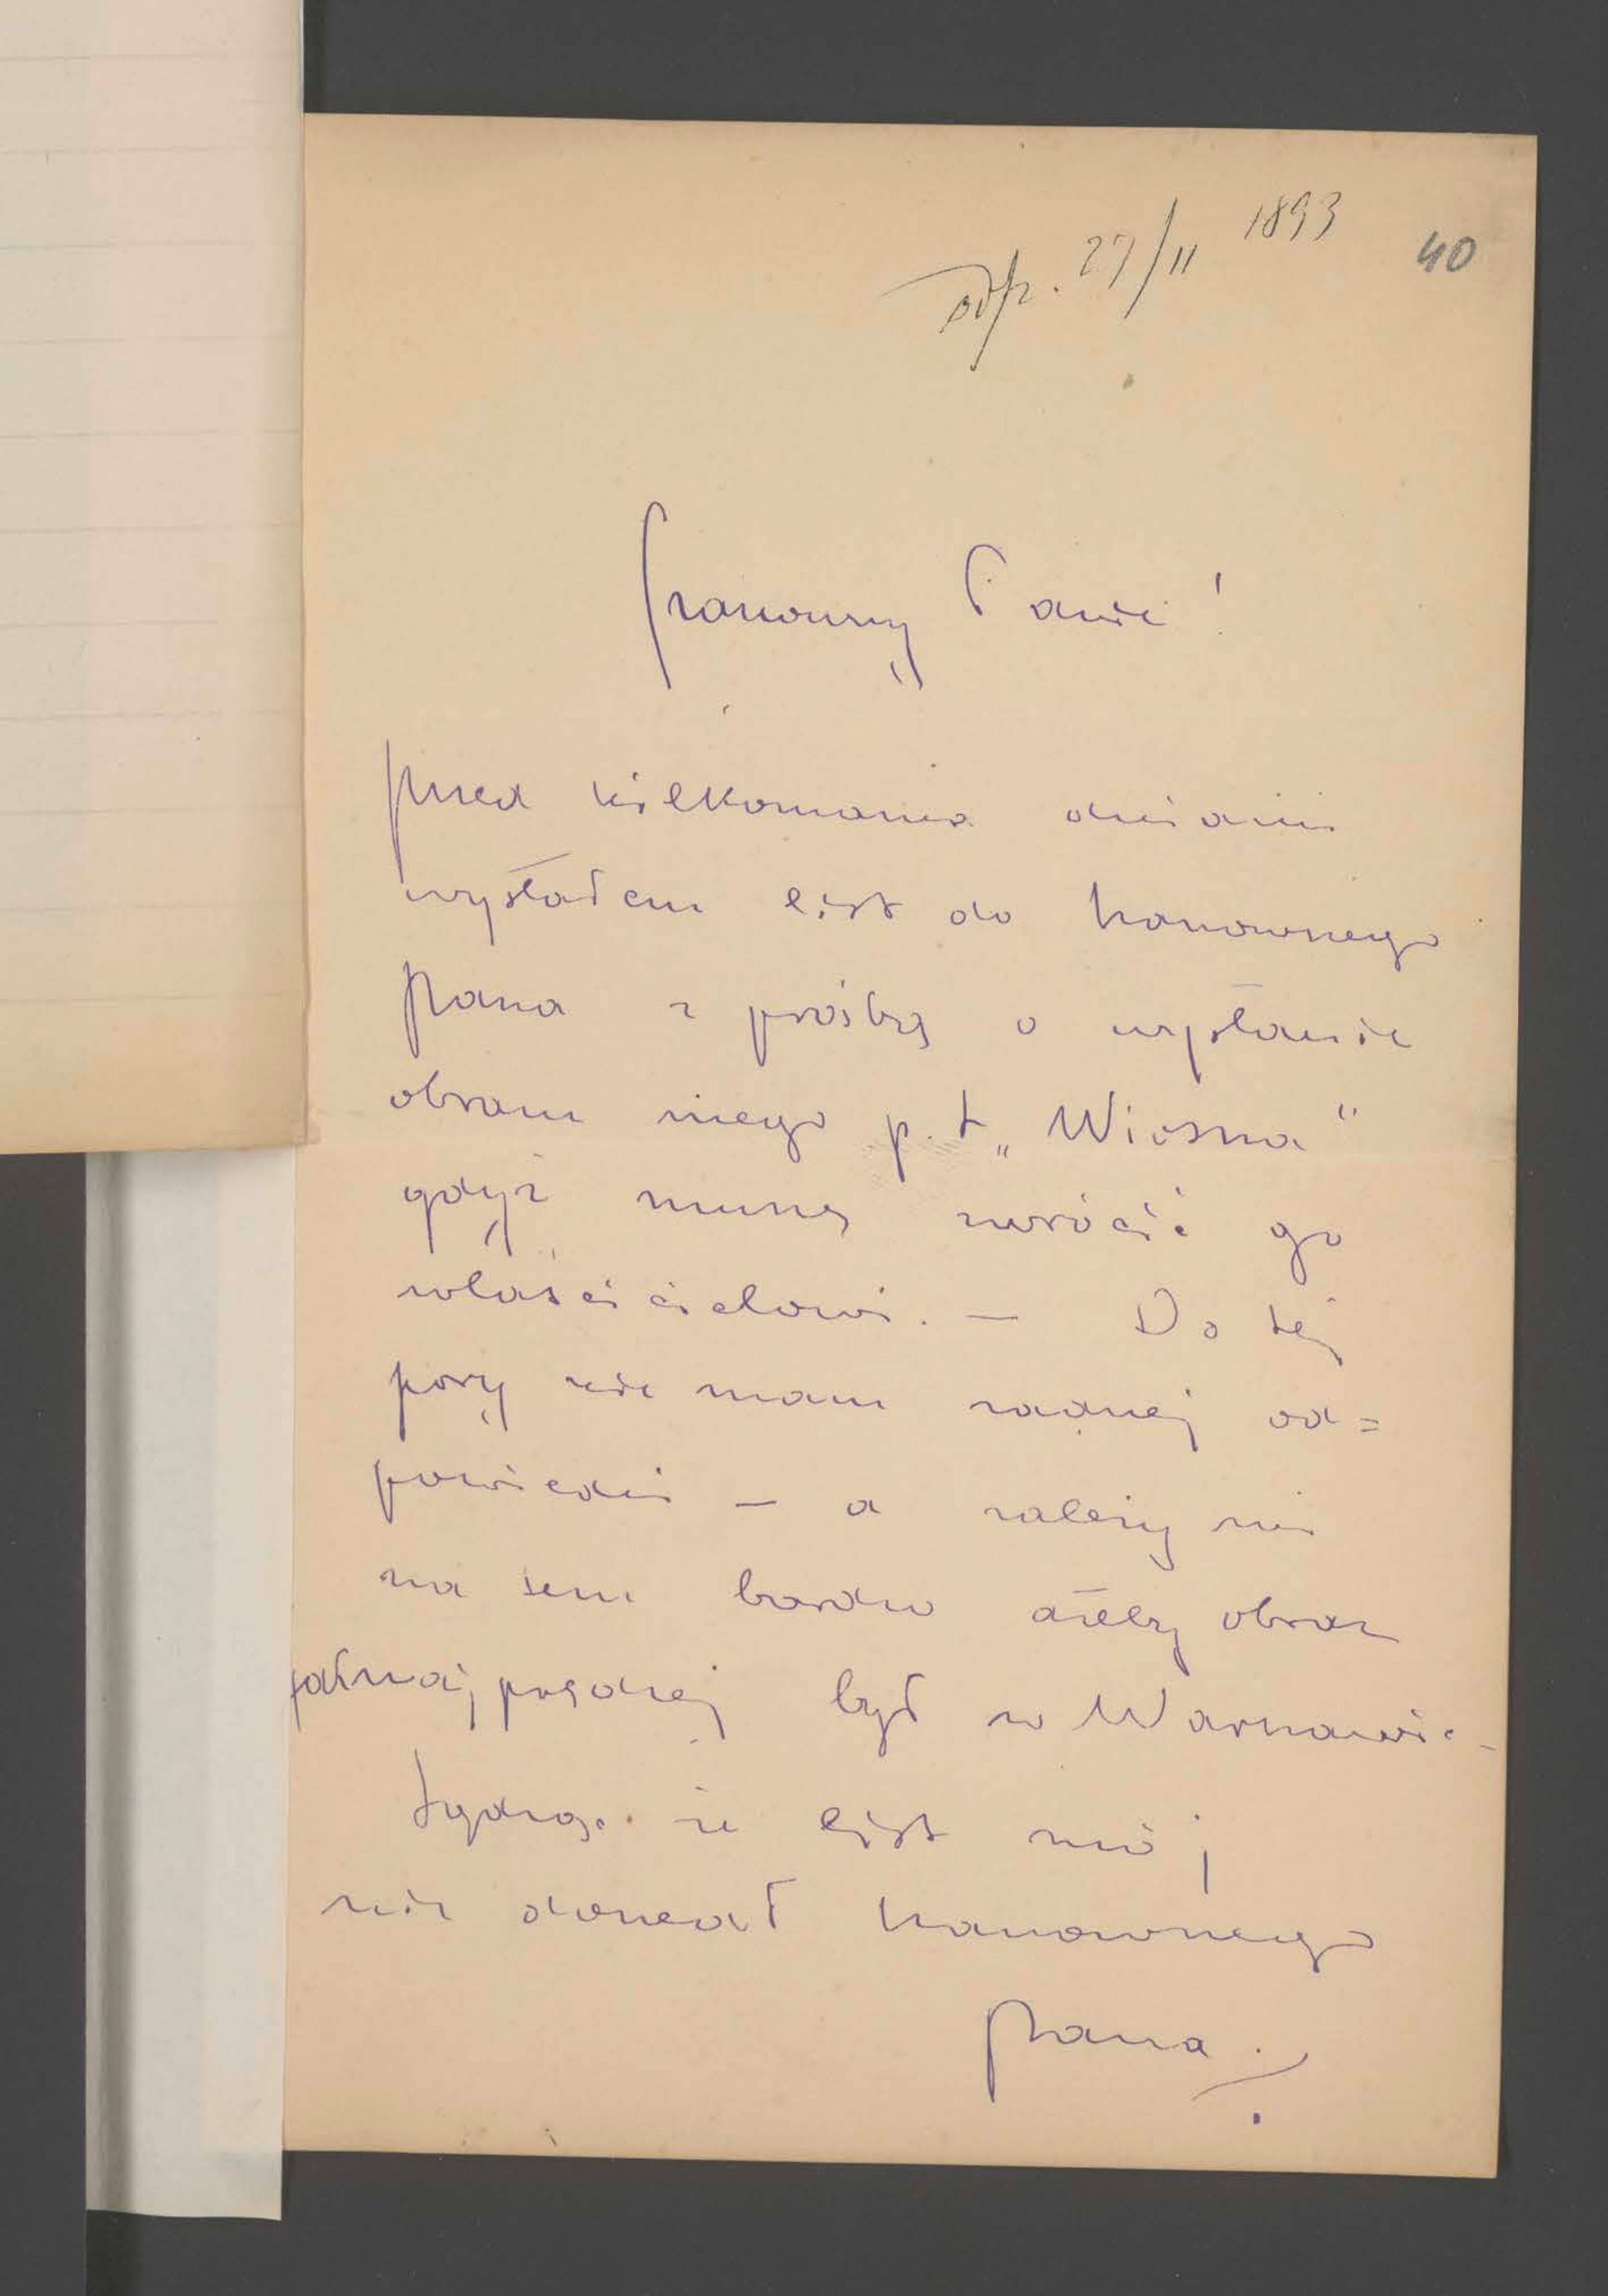 odp. 27/II 1893
40
Szanowny Panie!
przed kilkomana dniami
wysłałem list do szanownego
pana z prośbą o wysłanie
obrazu mego p. t „Wiosna"
gdyż muszę zwrócić go
właścicielowi. — Do tej
pory nie mam żadnej od=
powiedzi — a zależy mi
na tem bardzo ażeby obraz
jaknajprędzej był w Warszawie -
Sądzę że list mój
nie doszedł szanownego
pana.